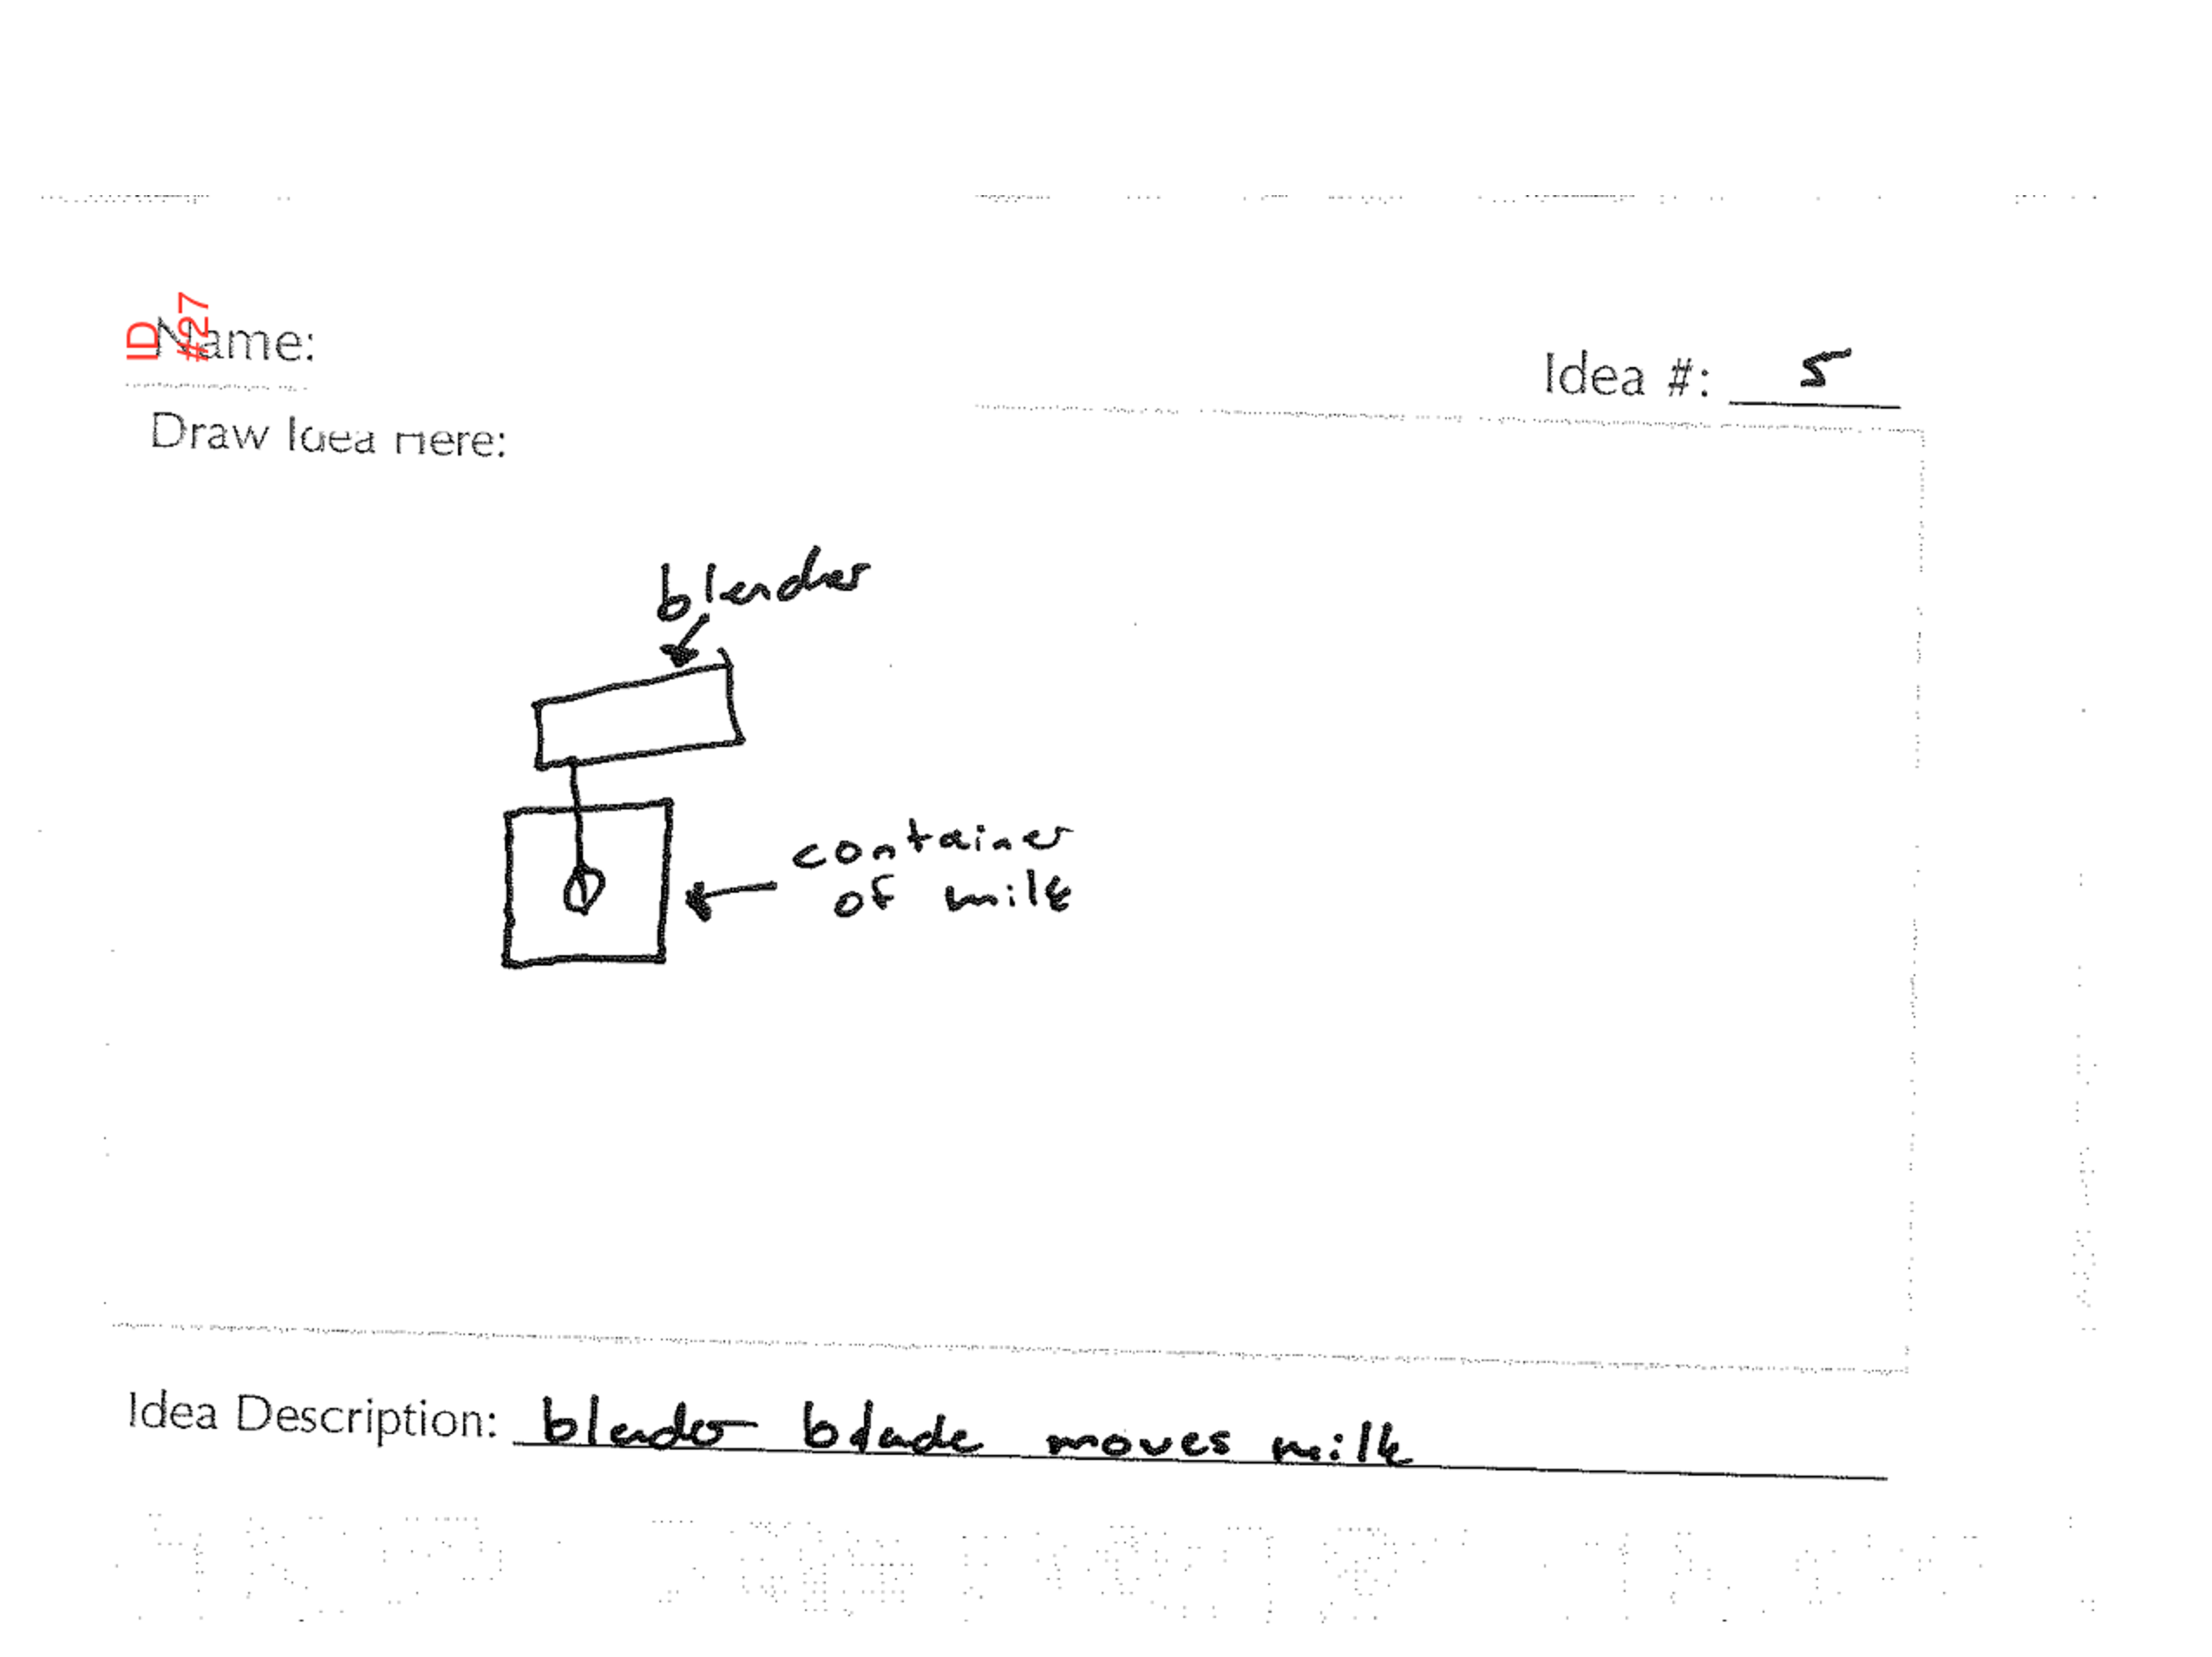 ID
#27
Name:
Idea #: 5
Draw Idea Here:
blender
container
of milk
Idea Description: blender blade moves milk